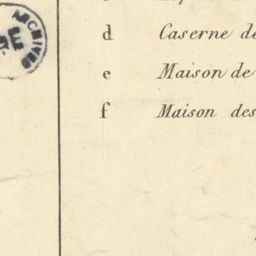 ARCHIVES
d Caserne de
e Maison de
f Maison des